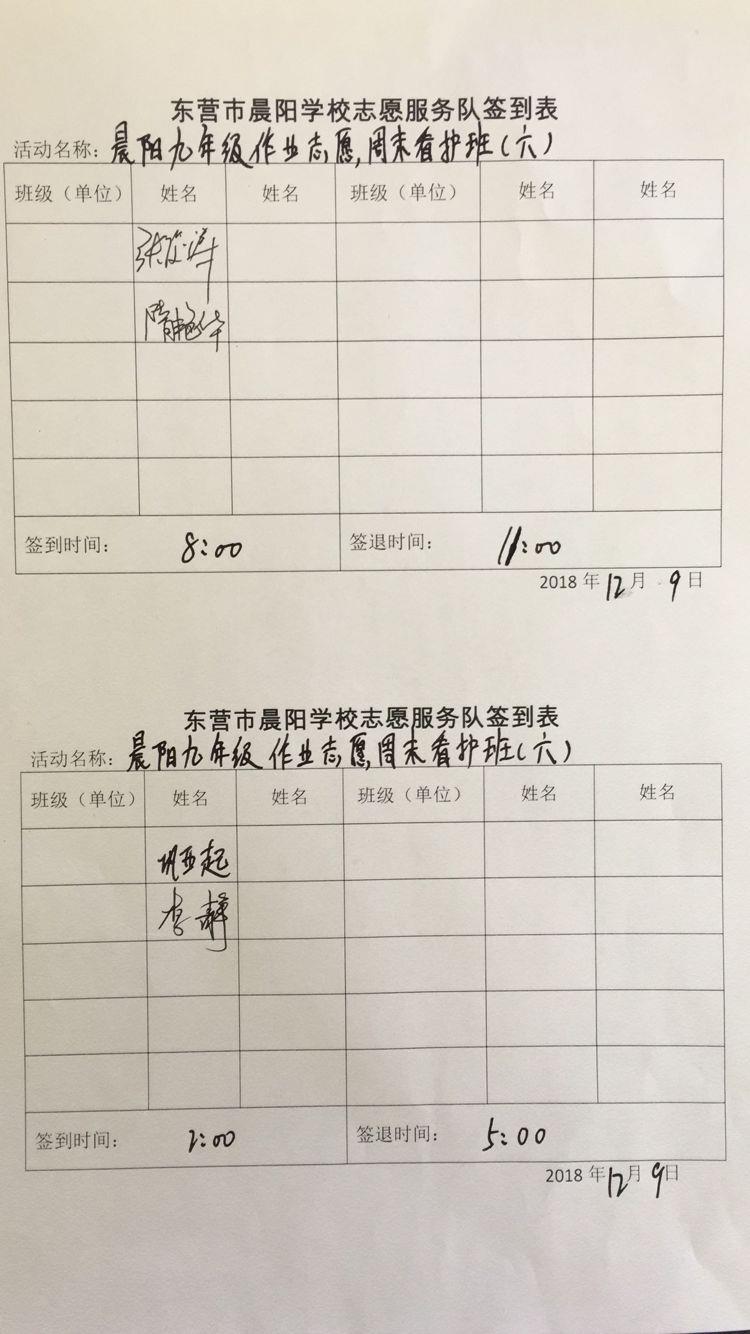 东营市晨阳学校志愿服务队签到表
活动名称：晨阳九年级作业志愿,周末看护班(六)
班级（单位） 姓名 姓名 班级（单位） 姓名 姓名
签到时间： 8:00 签退时间： 11:00
2018 年 12 月 9 日
东营市晨阳学校志愿服务队签到表
活动名称：晨阳九年级作业志愿,周末看护班(六)
班级（单位） 姓名 姓名 班级（单位） 姓名 姓名
巩西起
李静
签到时间： 2:00 签退时间： 5:00
2018 年 12 月 9 日